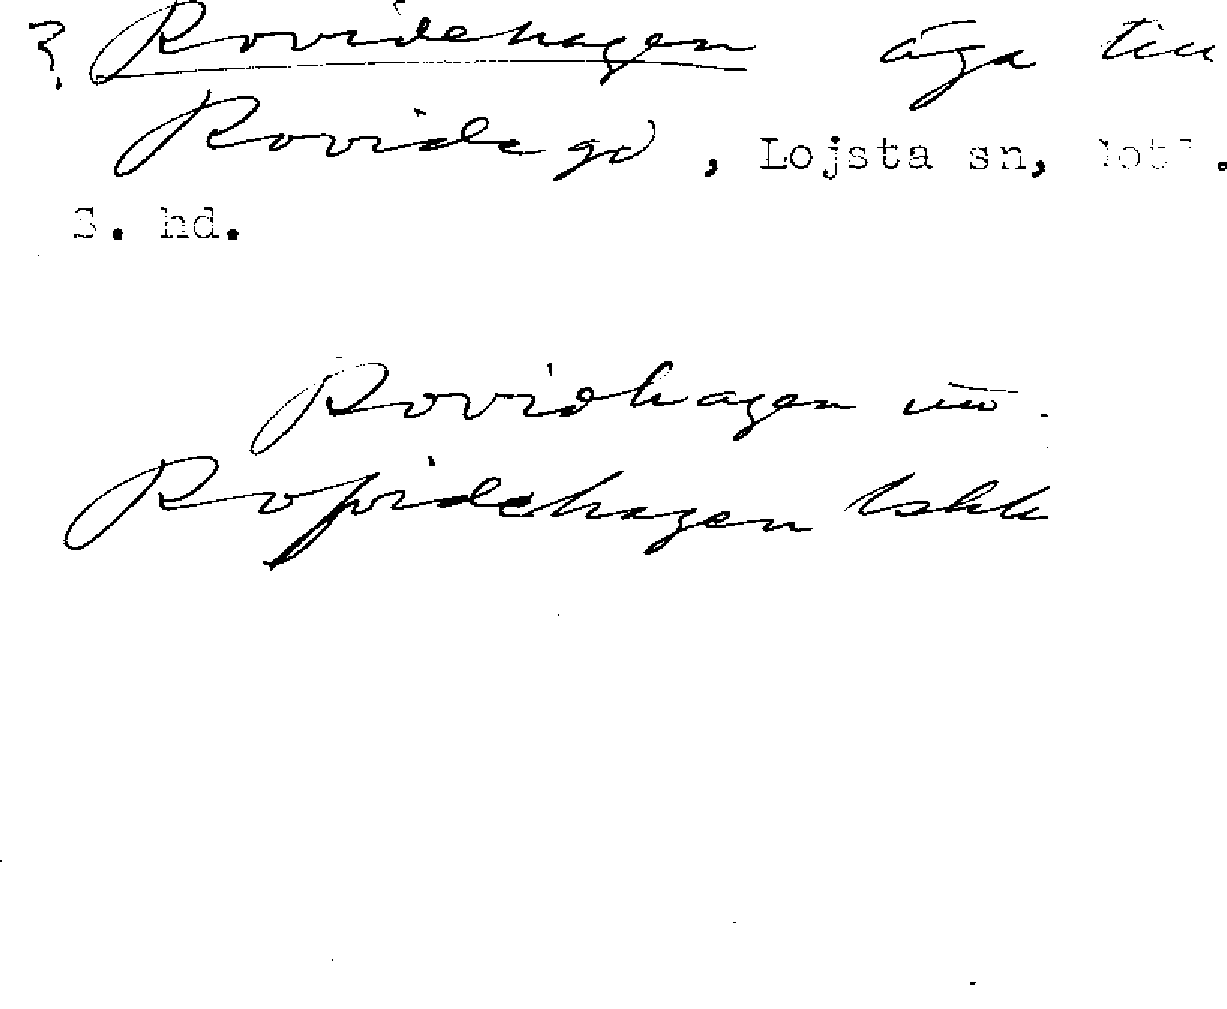 ? Rovidehagen äga till
Rovide gd, Lojsta sn, Gotl.
S. hd.
Rovidhagen
Rofvidehagen lskk